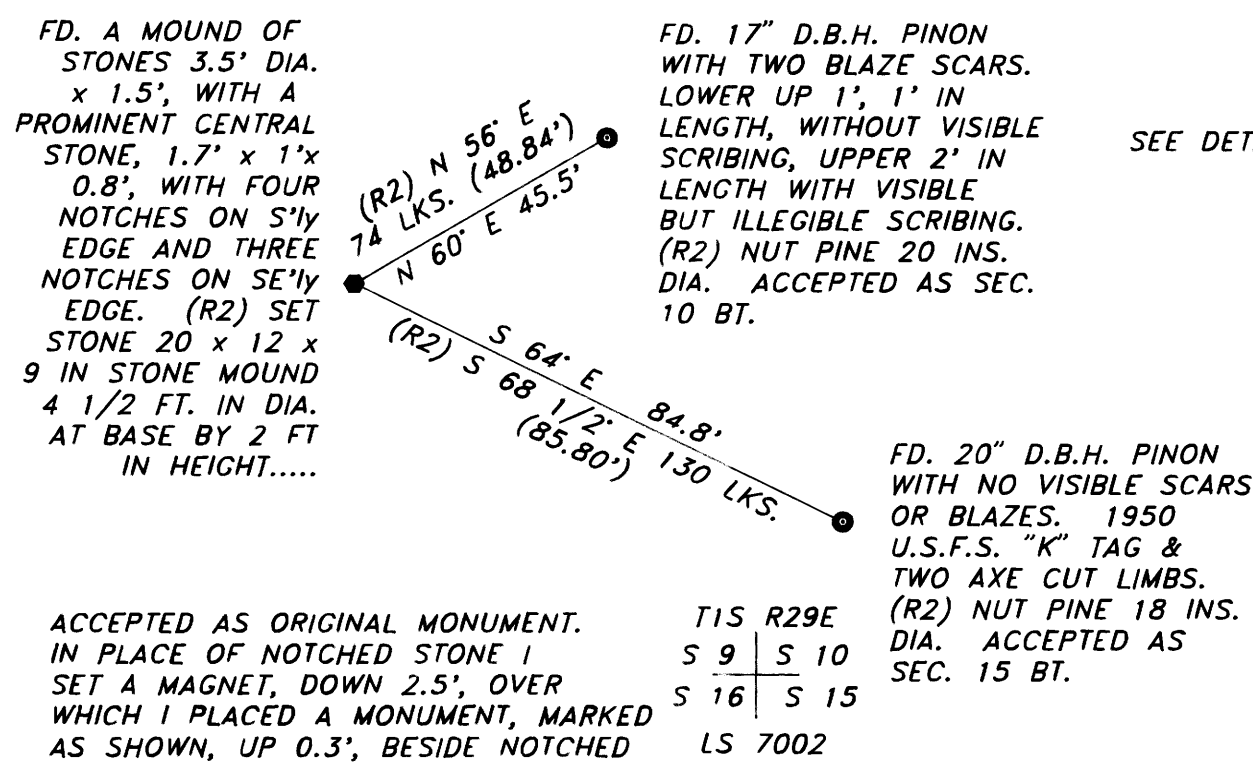 FD. A MOUND OF
STONES 3.5' DIA.
x 1.5', WITH A
PROMINENT CENTRAL
STONE, 1.7' x 1'x
0.8', WITH FOUR
NOTCHES ON S'ly
EDGE AND THREE
NOTCHES ON SE'ly
EDGE. (R2) SET
STONE 20 x 12 x
9 IN STONE MOUND
4 1/2 FT. IN DIA.
AT BASE BY 2 FT
IN HEIGHT.....
(R2) N 56° E
74 LKS. (48.84')
N 60° E 45.5'
FD. 17" D.B.H. PINON
WITH TWO BLAZE SCARS.
LOWER UP 1', 1' IN
LENGTH, WITHOUT VISIBLE
SCRIBING, UPPER 2' IN
LENGTH WITH VISIBLE
BUT ILLEGIBLE SCRIBING.
(R2) NUT PINE 20 INS.
DIA. ACCEPTED AS SEC.
10 BT.
SEE DET
S 64° E 84.8'
(R2) S 68 1/2° E 130 LKS.
(85.80')
FD. 20" D.B.H. PINON
WITH NO VISIBLE SCARS
OR BLAZES. 1950
U.S.F.S. "K" TAG &
TWO AXE CUT LIMBS.
(R2) NUT PINE 18 INS.
DIA. ACCEPTED AS
SEC. 15 BT.
ACCEPTED AS ORIGINAL MONUMENT.
IN PLACE OF NOTCHED STONE I
SET A MAGNET, DOWN 2.5', OVER
WHICH I PLACED A MONUMENT, MARKED
AS SHOWN, UP 0.3', BESIDE NOTCHED
T1S R29E
S 9 S 10
S 16 S 15
LS 7002